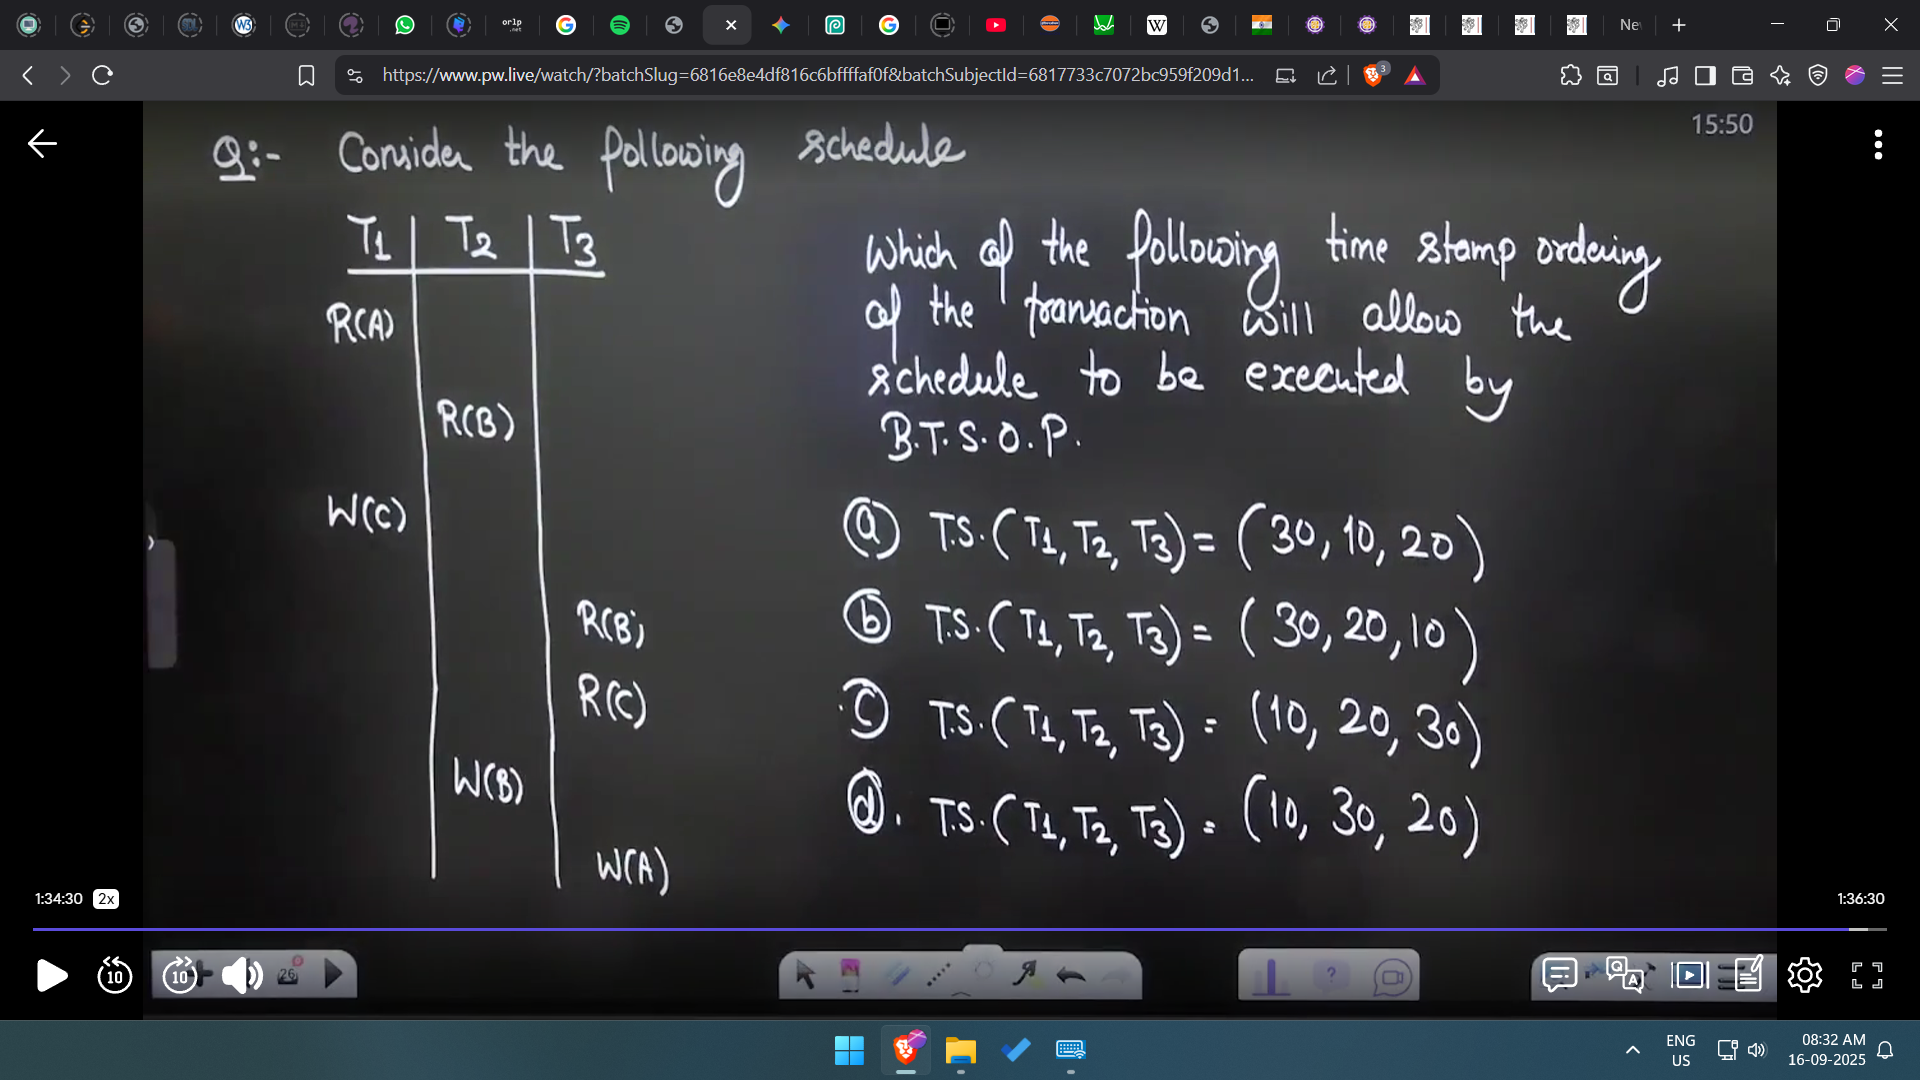 W3
orlp
.net
W
Ne
https://www.pw.live/watch/?batchSlug=6816e8e4df816c6bffffaf0f&batchSubjectId=6817733c7072bc959f209d1...
3
15:50
Q:- Consider the following schedule
T1 T2 T3
R(A)
R(B)
W(C)
R(B)
R(C)
W(B)
W(A)
Which of the following time stamp ordering
of the transaction will allow the
schedule to be executed by
B.T.S.O.P.
(a) T.S.(T1, T2, T3) = (30, 10, 20)
(b) T.S.(T1, T2, T3) = (30, 20, 10)
(c) T.S.(T1, T2, T3) = (10, 20, 30)
(d). T.S.(T1, T2, T3) = (10, 30, 20)
1:34:30 2x
1:36:30
10
10
26
?
Q A
ENG
US
08:32 AM
16-09-2025